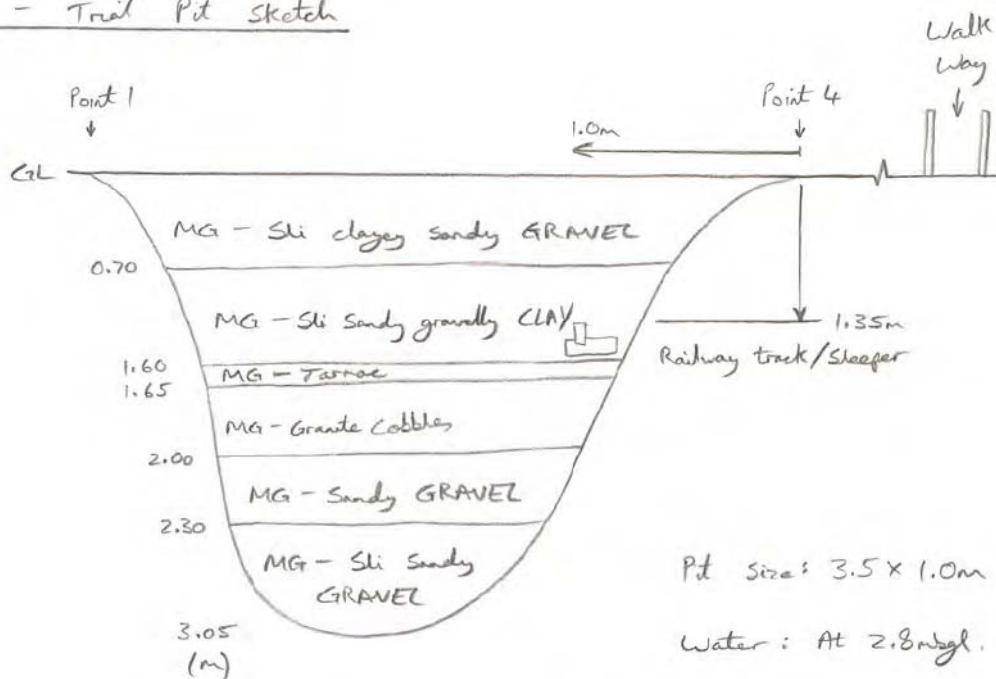 - Trial Pit Sketch
Walk
Way
Point 1
Point 4
1.0m
GL
MG - Sli clayey sandy GRAVEL
0.70
MG - Sli Sandy gravelly CLAY
1.35m
Railway track/Sleeper
1.60
MG - Tarmac
1.65
MG - Granite Cobbles
2.00
MG - Sandy GRAVEL
2.30
MG - Sli Sandy
GRAVEL
Pit Size: 3.5 x 1.0m
3.05
(m)
Water: At 2.8mbgl.